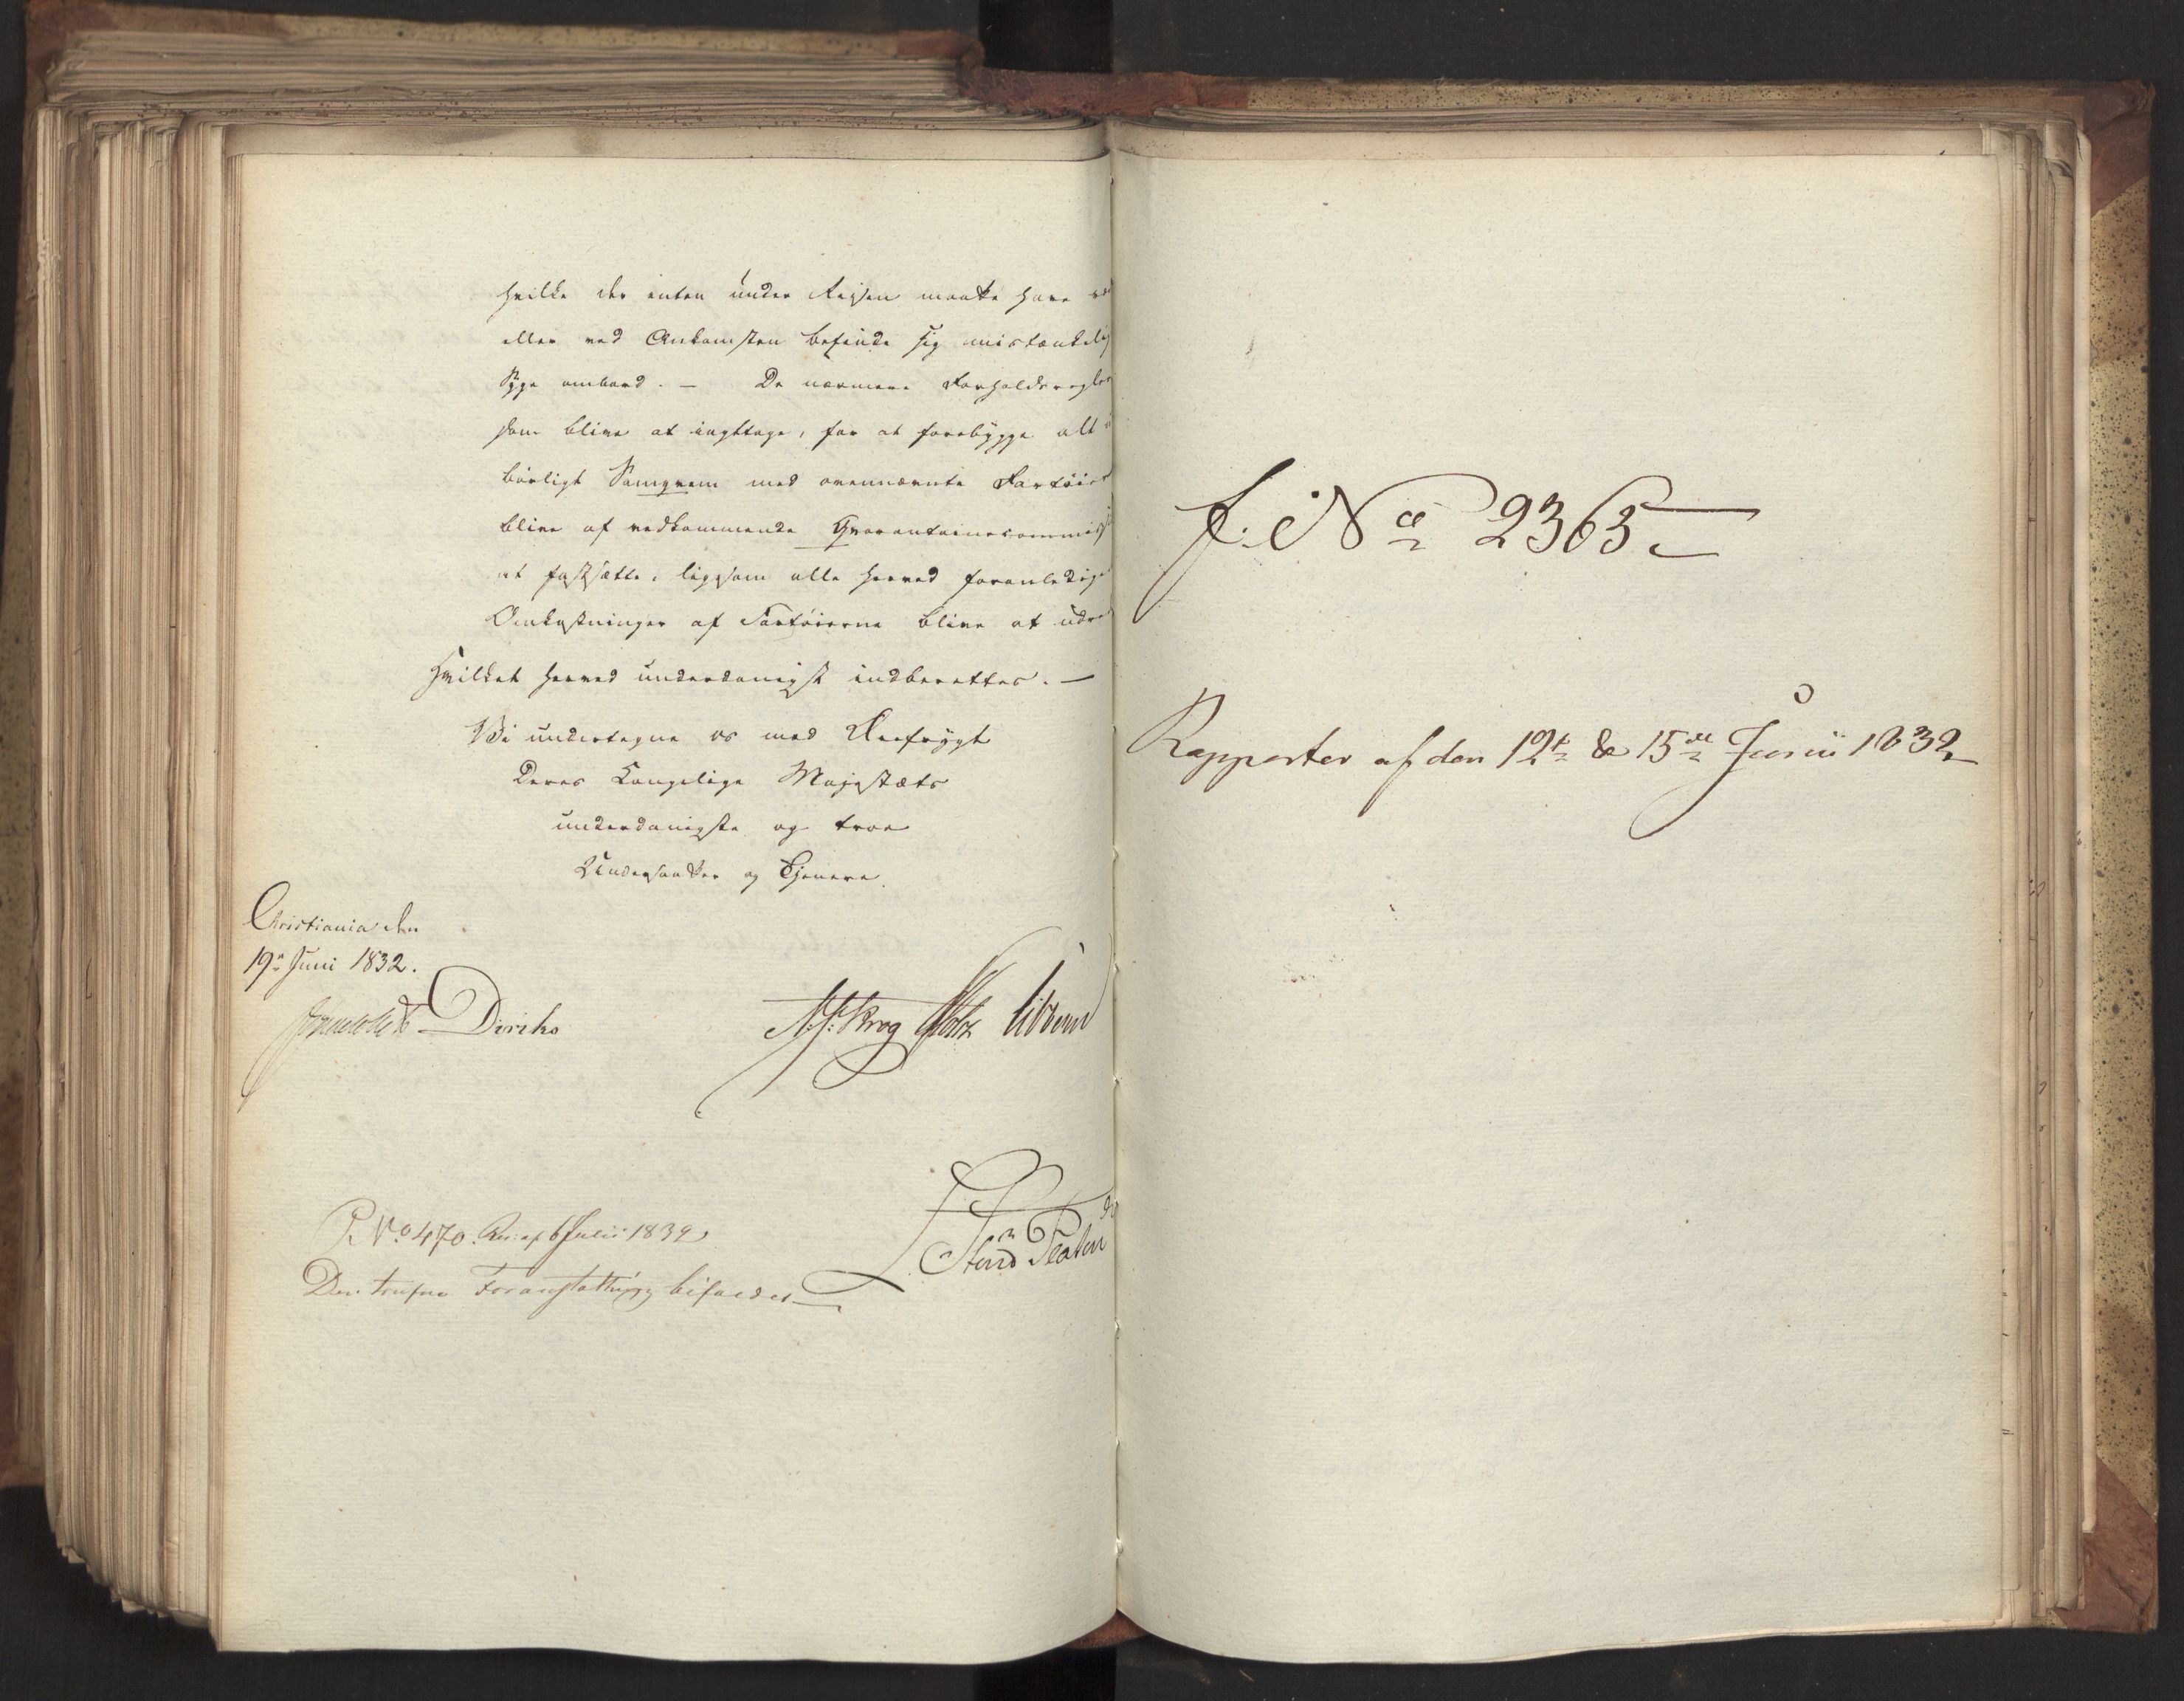 hvilke der enten under Reisen maatte have
eller ved Ankomsten befinde sig mistænkelig
Syge ombord. — De nærmere Forholdsregler
som blive at iagttage, for at forebygge alt
børligt Samqvem med ovennævnte Fartøier
blive af vedkommende Qvarantainecommiss
at fastsætte, ligesom alle herved foranledige
Omkostninger af Fartøierne blive at udre
Hvilket herved underdanigst indberettes. —
Vi undertegne os med Ærefrygt
Deres Kongelige Majestæts
underdanigste og troe
Undersaatter og Tjenere.
Christiania den
19n Juni 1832.
Diriks
Krog Holst
P. No 470. Res: af 6 Julii 1832
Den trufne Foranstaltning bifaldes
f. No 2365
Rapporter af den 12te & 15de Junii 1832